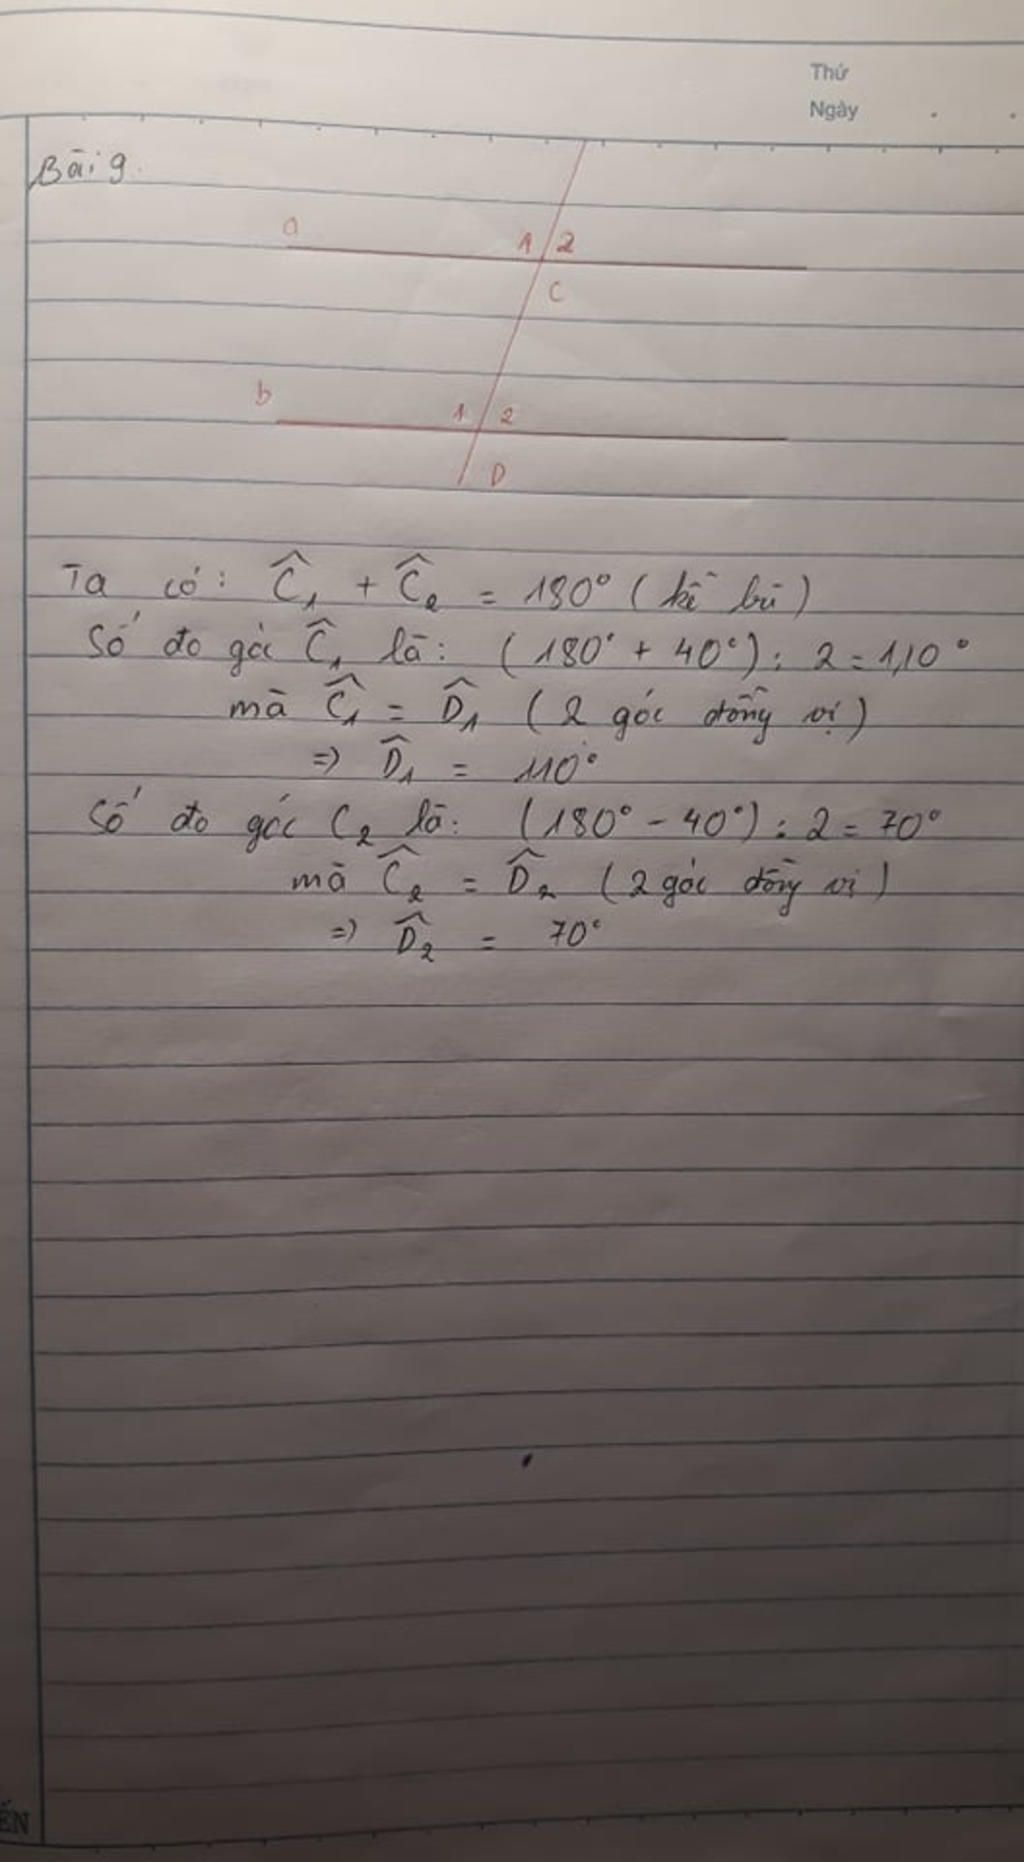 Thứ
Ngày
Bài 9.
a
1 2
C
b
1 2
D
Ta có: Ĉ₁ + Ĉ₂ = 180° (kề bù)
Số đo góc Ĉ₁ là: (180° + 40°) : 2 = 110°
mà Ĉ₁ = D̂₁ (2 góc đồng vị)
=> D̂₁ = 110°
Số đo góc C₂ là: (180° - 40°) : 2 = 70°
mà Ĉ₂ = D̂₂ (2 góc đồng vị)
=> D̂₂ = 70°
ẾN